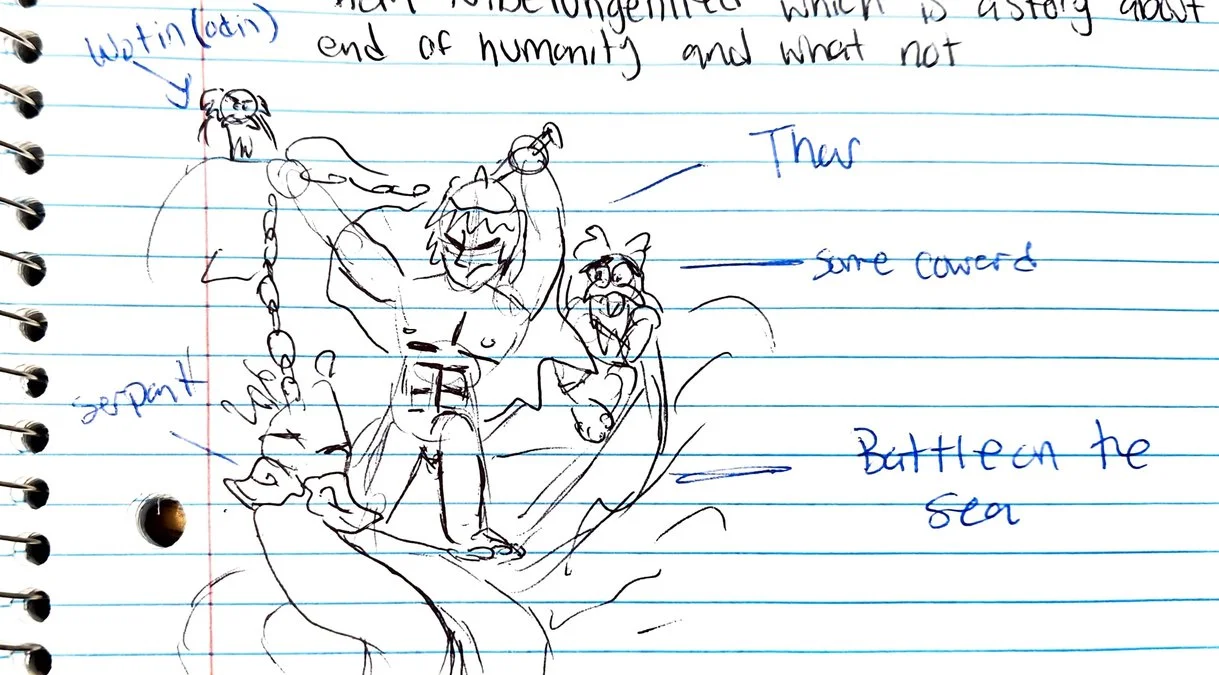 Nibelungenlied which is a story about
end of humanity and what not
Wotin (odin)
Thor
some coward
serpant
Battle on the
sea